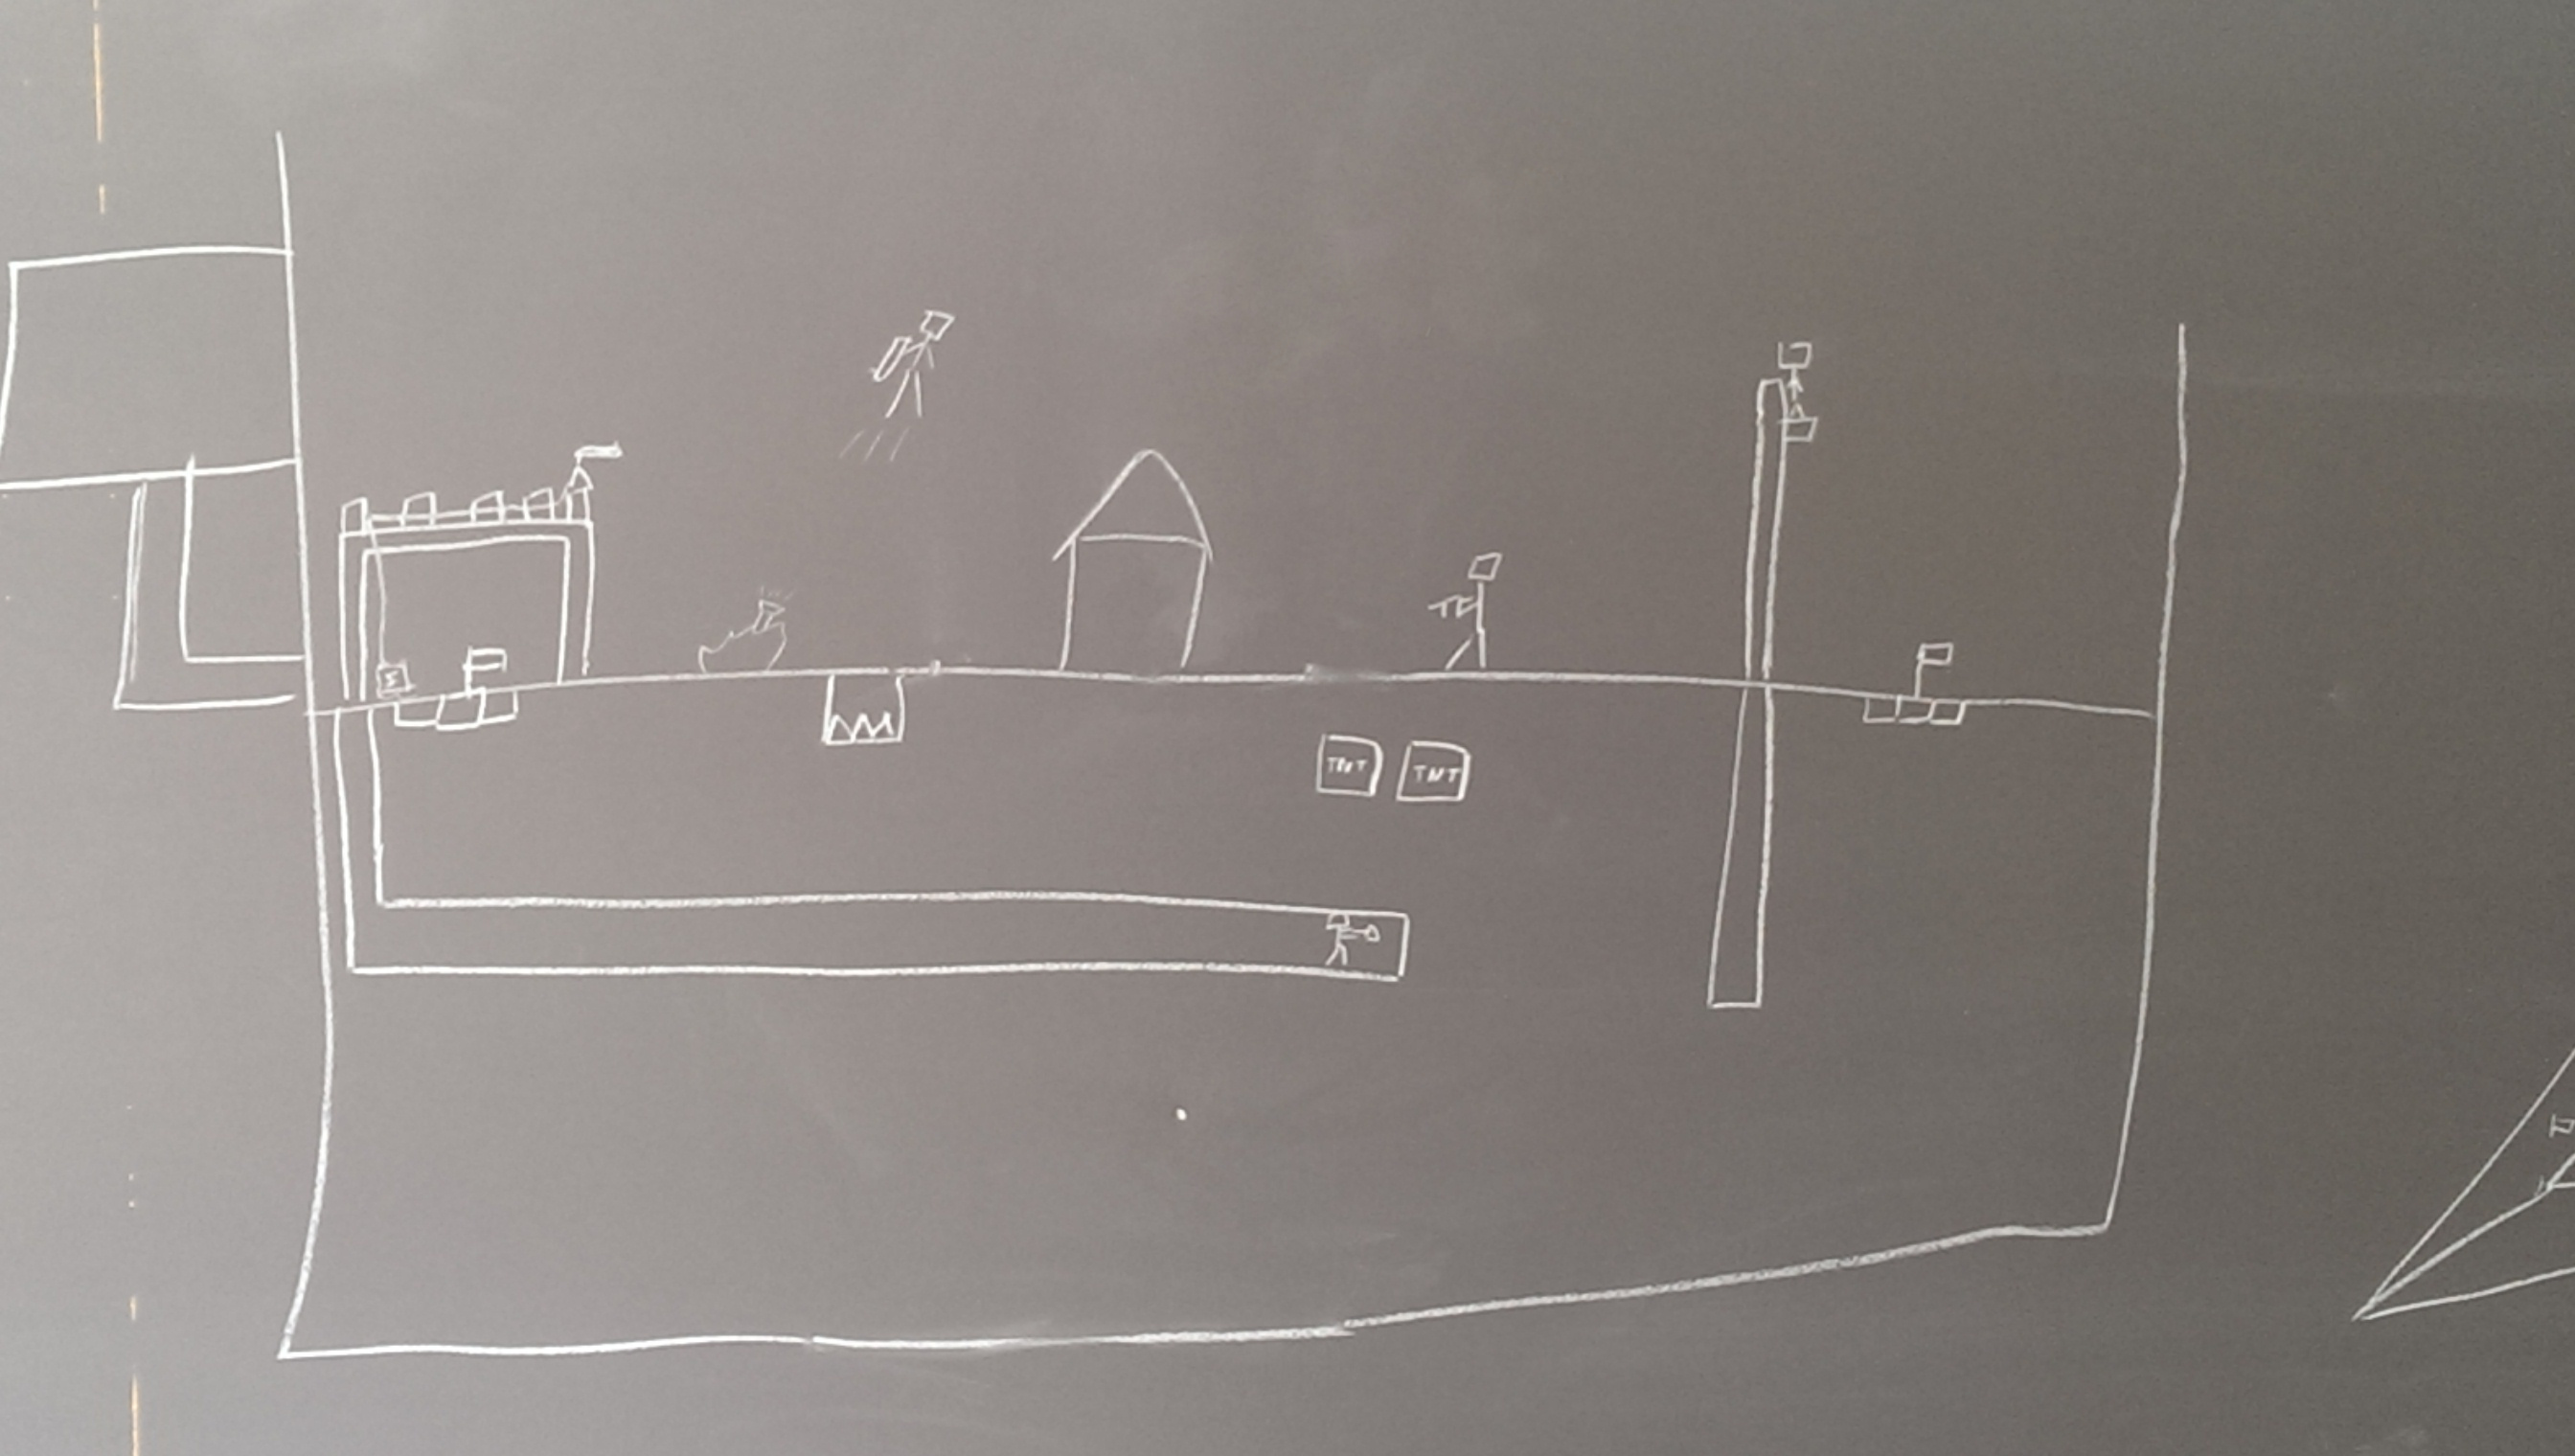 TNT TNT